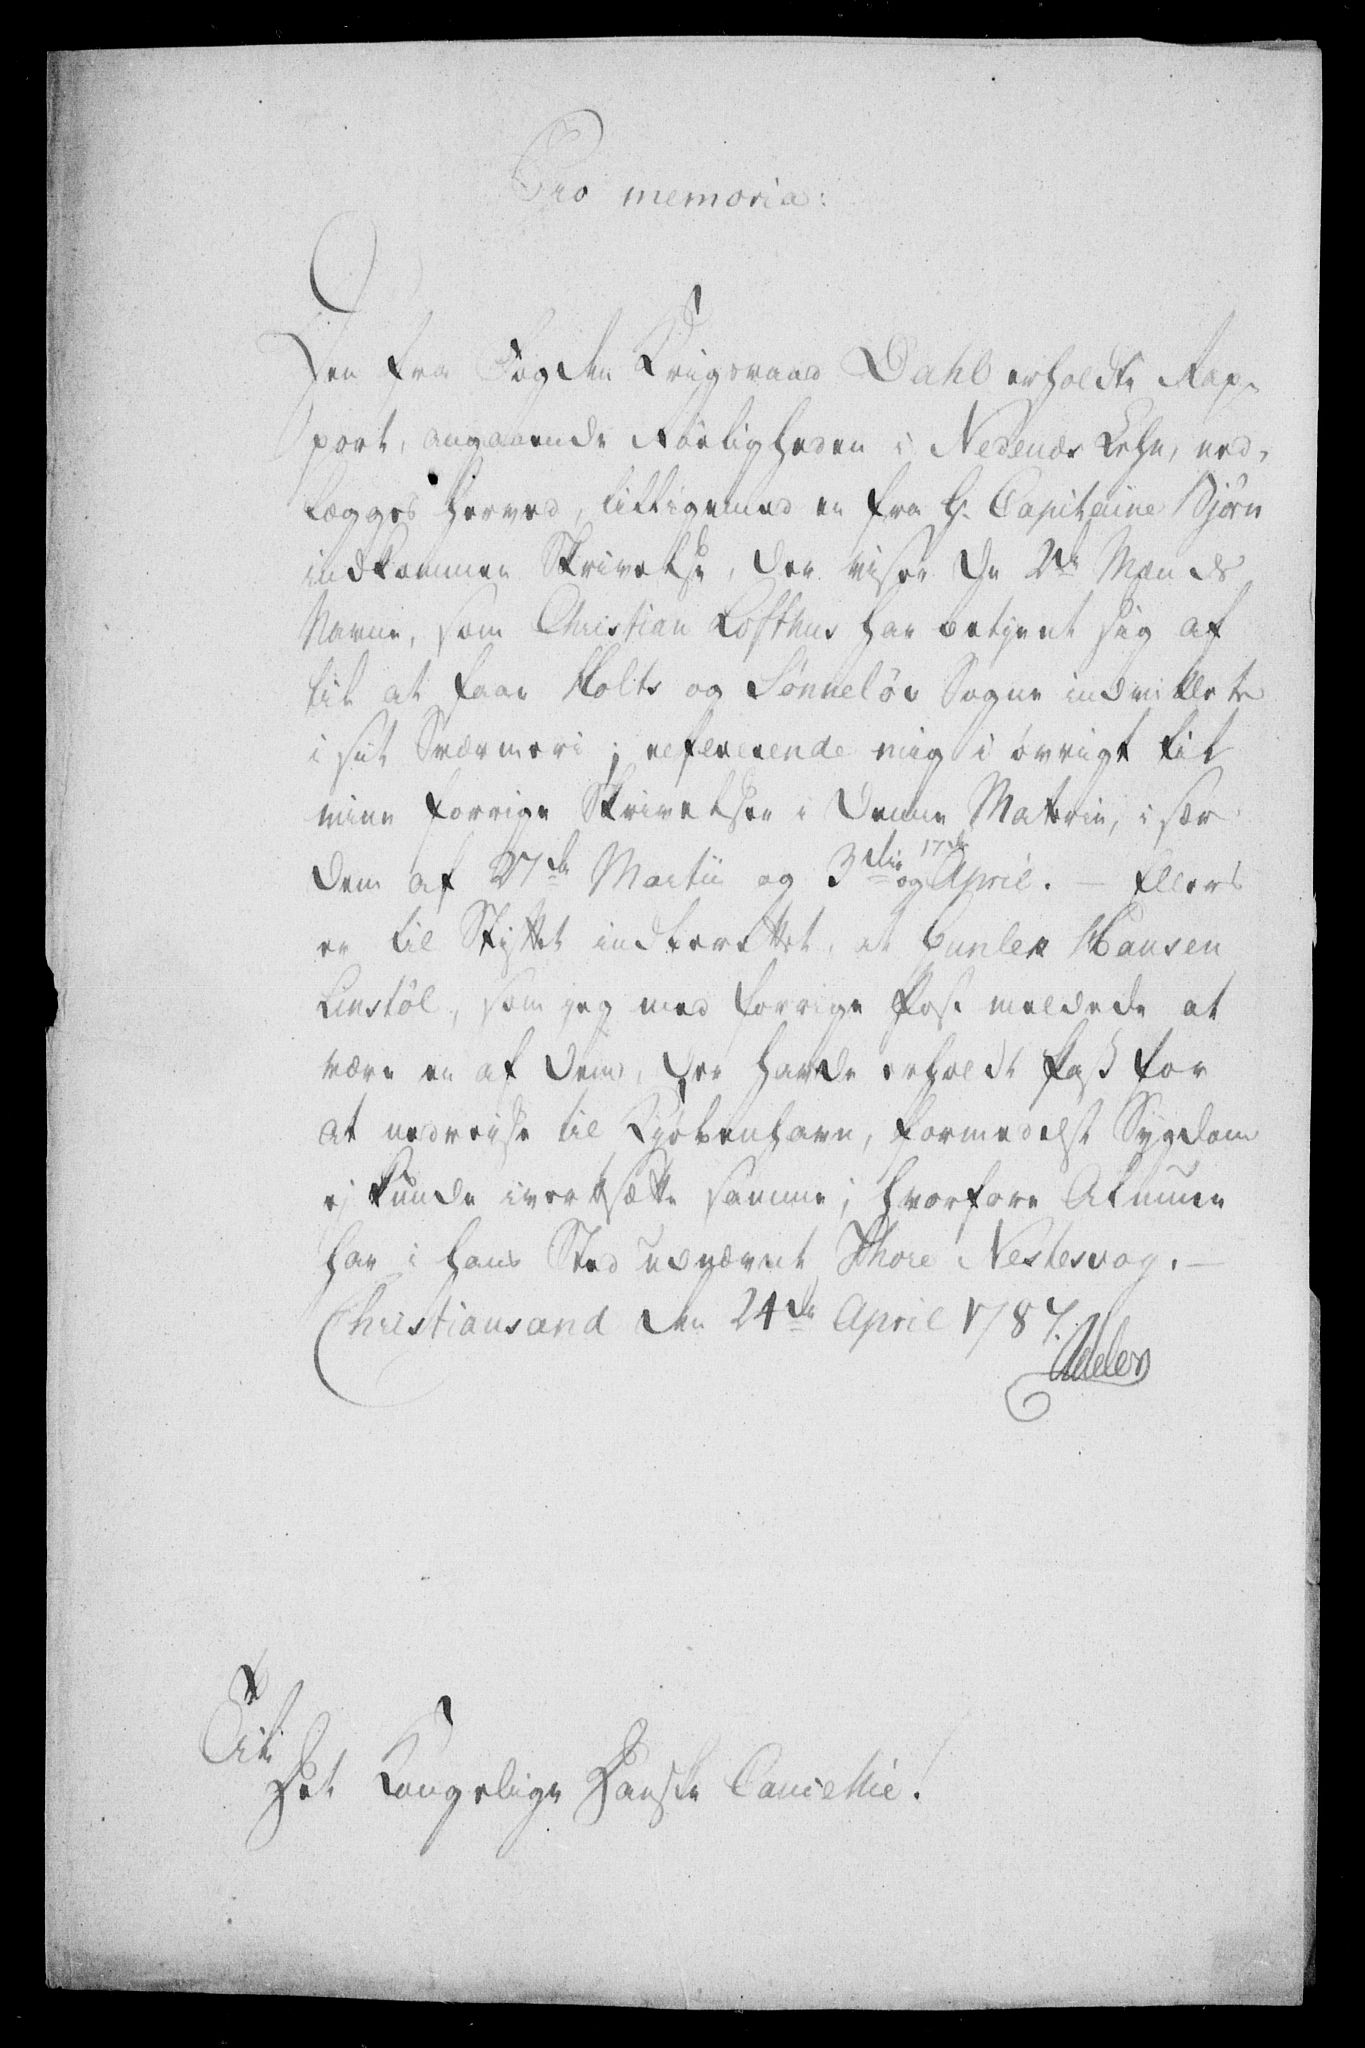 Pro memoria:
Den fra Fogden Krigsraad Dahl erholdte Rap-
port, angaaende Roeligheden i Nedenæs Lehn, ned-
lægges herved, tilligemed en fra H. Capitaine Bjørn
indkommen Skrivelse, der viser de 2de Mænds
Navne, som Christian Lofthus har betjent sig af
til at faae Holts og Sønneløv Sogne indviklete
i sit Sværmeri; refererende mig i øvrigt til
mine forrige Skrivelser i denne Materie, i sær
dem af 27de Martii og 3die og 17de April. – Ellers
er til Stiftet indberettet, at Gunler Hansen
Linstøl, som jeg med forrige Post meldede at
være en af dem, der havde erholdt Pass for
at nedreise til Kjøbenhavn, formedelst Sygdom
ej kunde iverksætte samme; hvorfore Almuen
har i hans Sted udnævnt Thore Nestesvog. –
Christiansand den 24de April 1787.
Adeler
Til
Det Kongelige Danske Cancellie!